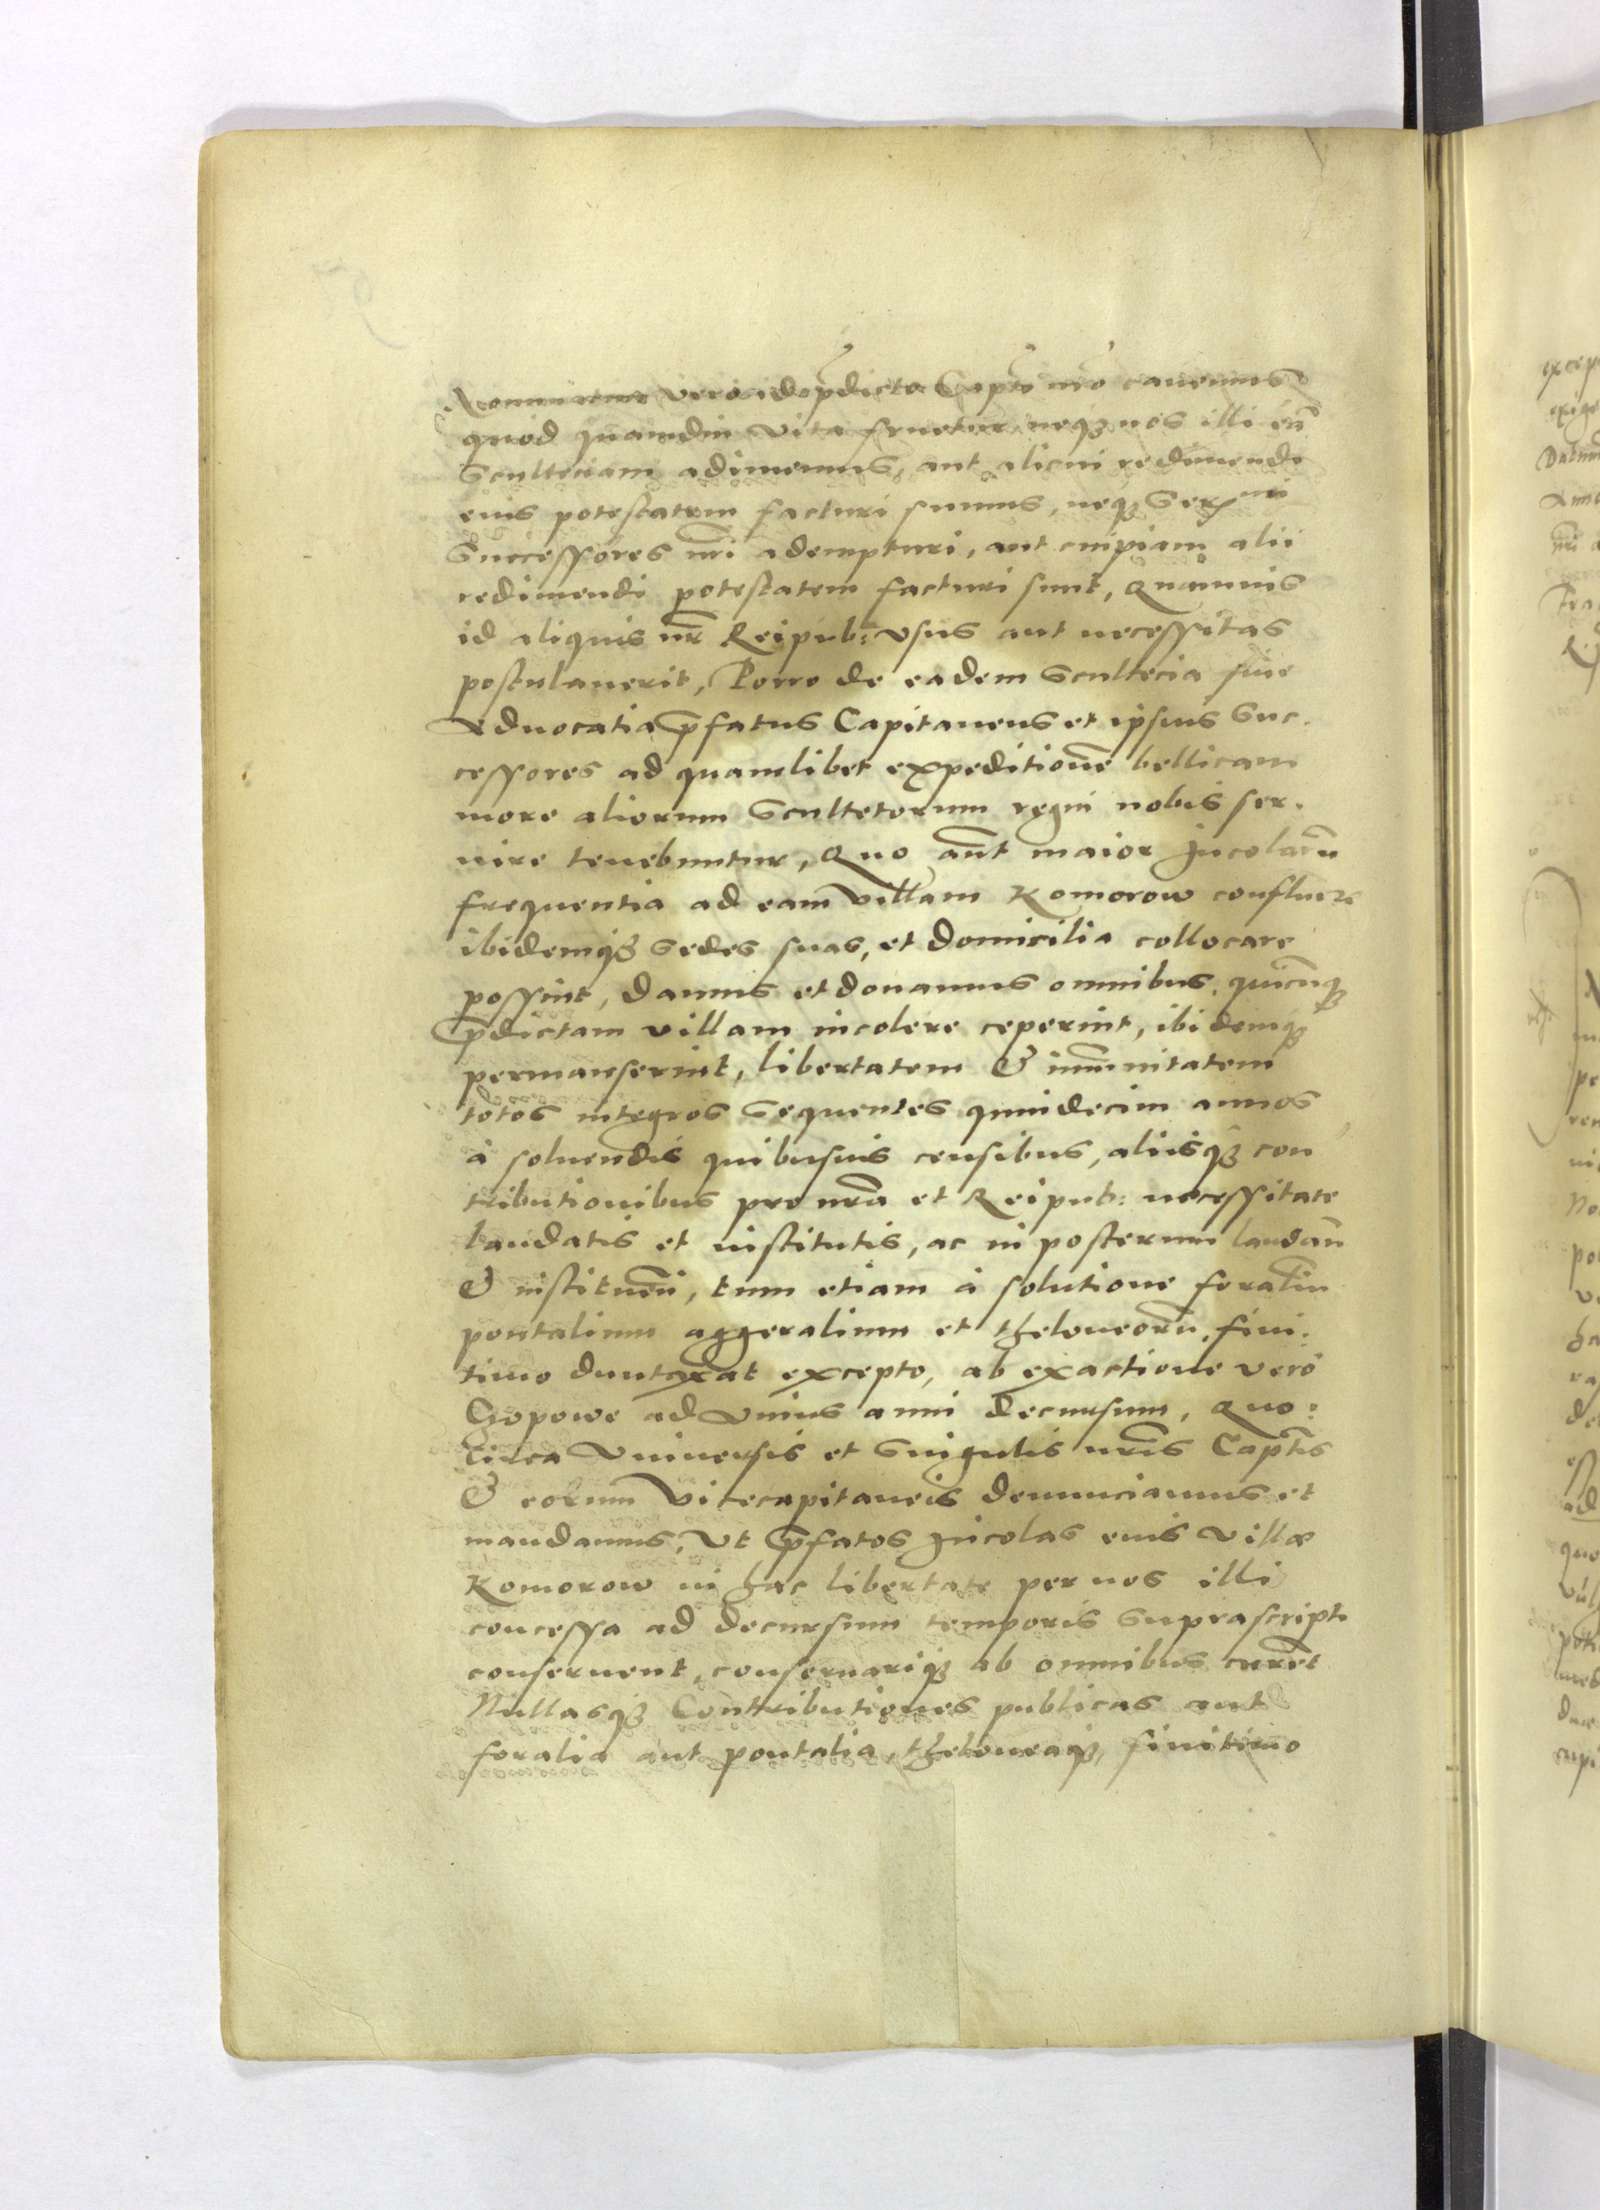 vero id p̄dicto Capn̄o nr̄o cauemus
quod quamdiu vita fruetur neqꝫ nos illi eā
Scultetiam adimemus, aut alicui redimendi
eius potestatem facturi sumus, neqꝫ Serᵐⁱ
Successores nr̄i adempturi, aut cuipiam alii
redimendi potestatem facturi sunt, Quamuis
id aliquis nr̄ Reipub: vsus aut necessitas
postulauerit, Porro de eadem Scultecia siue
Aduocatia p̄fatus Capitaneus et ipsius Suc
cessores ad quamlibet expeditionē bellicam
more aliorum Scultetorum regni nobis ser
uire tenebuntur, Quo aūt maior Incolarū
frequentia ad eam villam Komorow confluere
ibidemqꝫ sedes suas, et domicilia collocare
possint, damus et donamus omnibus quicūqꝫ
p̄dictam villam incolere ceperint, ibidemqꝫ
permanserint, libertatem & im̄unitatem
totos integros sequentes quindecim annos
à soluendis quibusuis censibus, aliisqꝫ con
tributionibus pro nr̄a et Reipub: necessitate
laudatis et institutis, ac in posterum laudan̄
& instituen̄, tum etiam à solutione foraliū
pontalium aggeralium et theloneorū, fini
timo duntaxat excepto, ab exactione vero
Czopowe ad vnius anni decursum, Quo:
circa vniuersis et singulis nr̄is Capn̄is
& eorum vicecapitaneis denunciamus et
mandamus, vt p̄fatos Incolas eius villæ
Komorow in hac libertate per nos illi
concessa ad decursum temporis suprascripti
conseruent, conseruariqꝫ ab omnibus curēt
Nullasqꝫ Contributiones publicas aut
foralia aut pontalia, theloneaqꝫ, finitimo